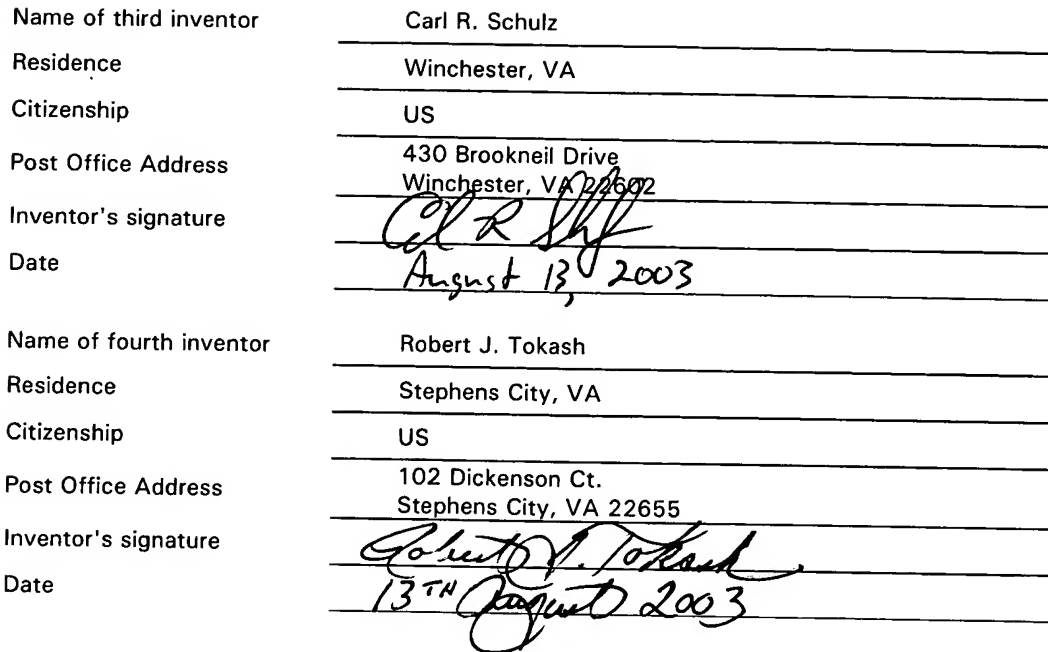 Name of third inventor Carl R. Schulz
Residence Winchester, VA
Citizenship US
Post Office Address 430 Brookneil Drive
Winchester, VA 22602
Inventor's signature Carl R Schulz
Date August 13, 2003
Name of fourth inventor Robert J. Tokash
Residence Stephens City, VA
Citizenship US
Post Office Address 102 Dickenson Ct.
Stephens City, VA 22655
Inventor's signature Robert J. Tokash
Date 13TH August 2003